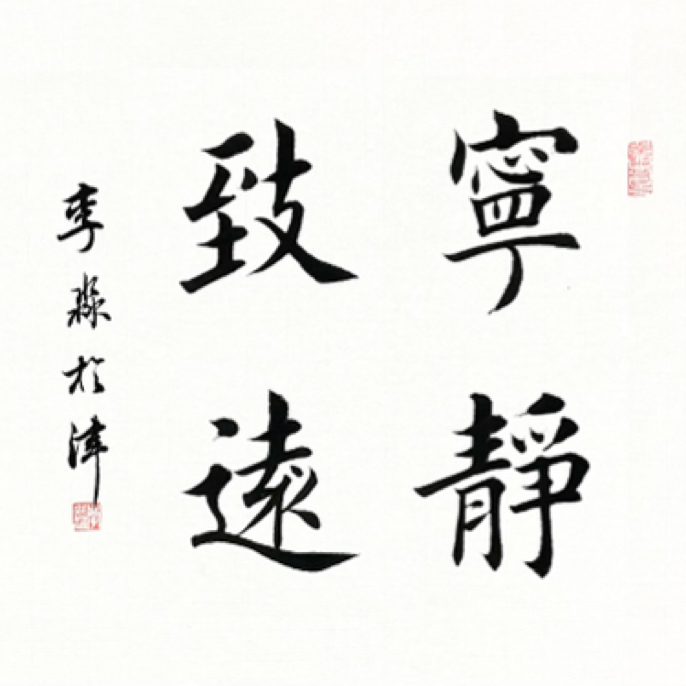 寧靜
致遠
李淼於津